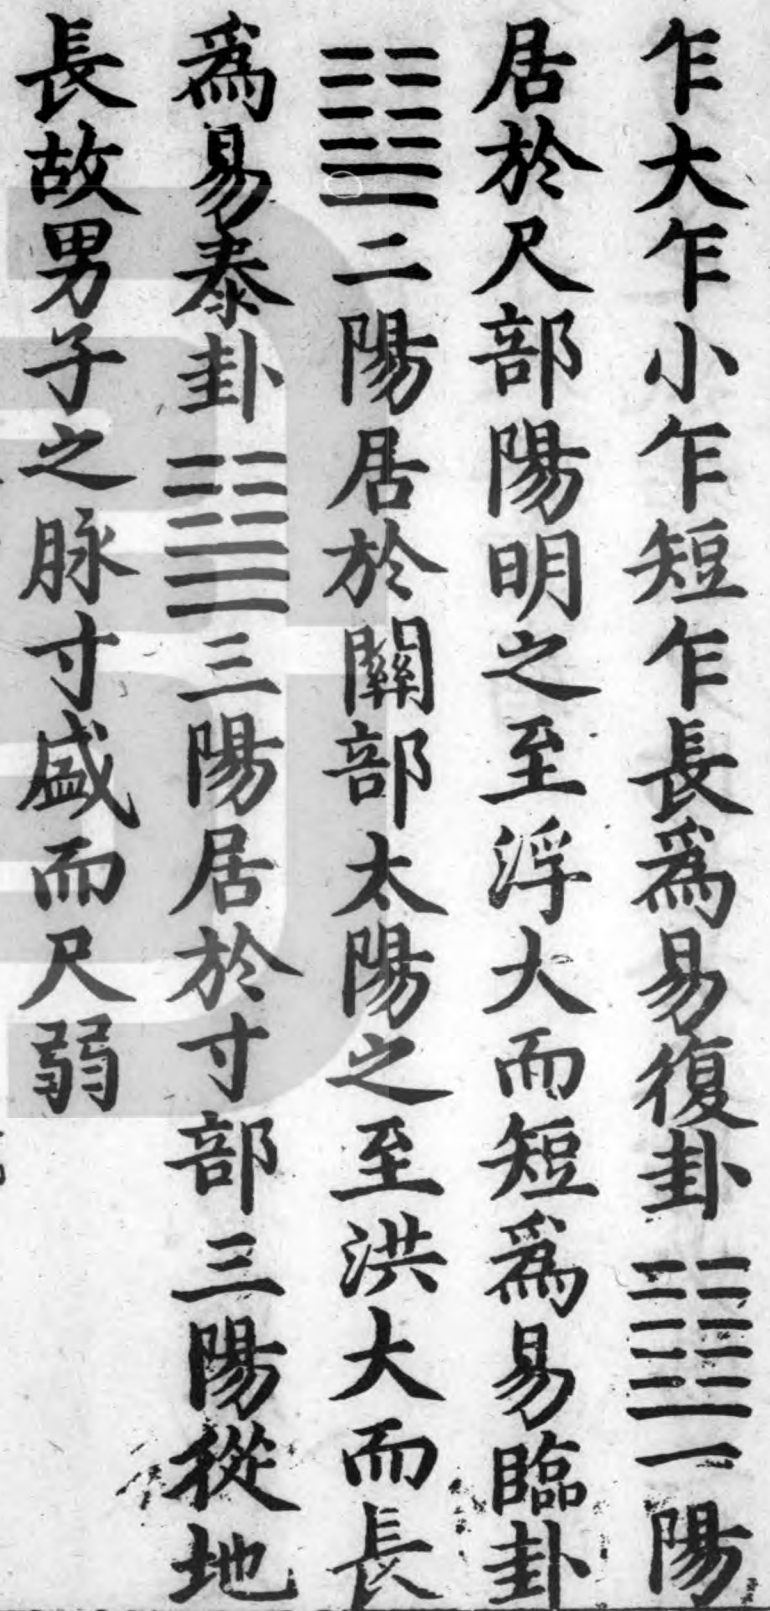 乍大乍小乍短乍長爲易復卦䷗一陽
居於尺部陽明之至浮大而短爲易臨卦
䷒二陽居於關部太陽之至洪大而長
爲易泰卦䷊三陽居於寸部三陽從地
長故男子之脉寸盛而尺弱